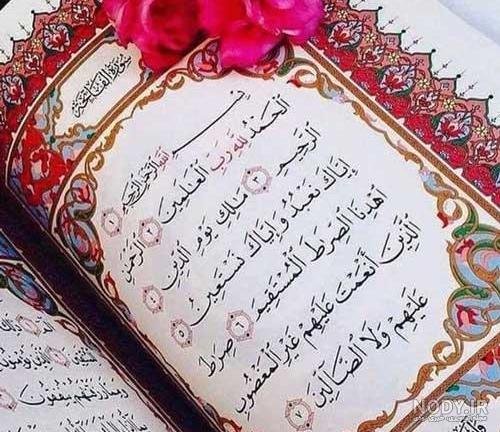 سُورَةُ الفَاتِحَةِ
بِسْمِ اللَّهِ الرَّحْمَٰنِ الرَّحِيمِ ١
الْحَمْدُ لِلَّهِ رَبِّ الْعَالَمِينَ ٢ الرَّحْمَٰنِ
الرَّحِيمِ ٣ مَالِكِ يَوْمِ الدِّينِ ٤
إِيَّاكَ نَعْبُدُ وَإِيَّاكَ نَسْتَعِينُ ٥
اهْدِنَا الصِّرَاطَ الْمُسْتَقِيمَ ٦ صِرَاطَ
الَّذِينَ أَنْعَمْتَ عَلَيْهِمْ غَيْرِ الْمَغْضُوبِ
عَلَيْهِمْ وَلَا الضَّالِّينَ ٧
NODY.IR